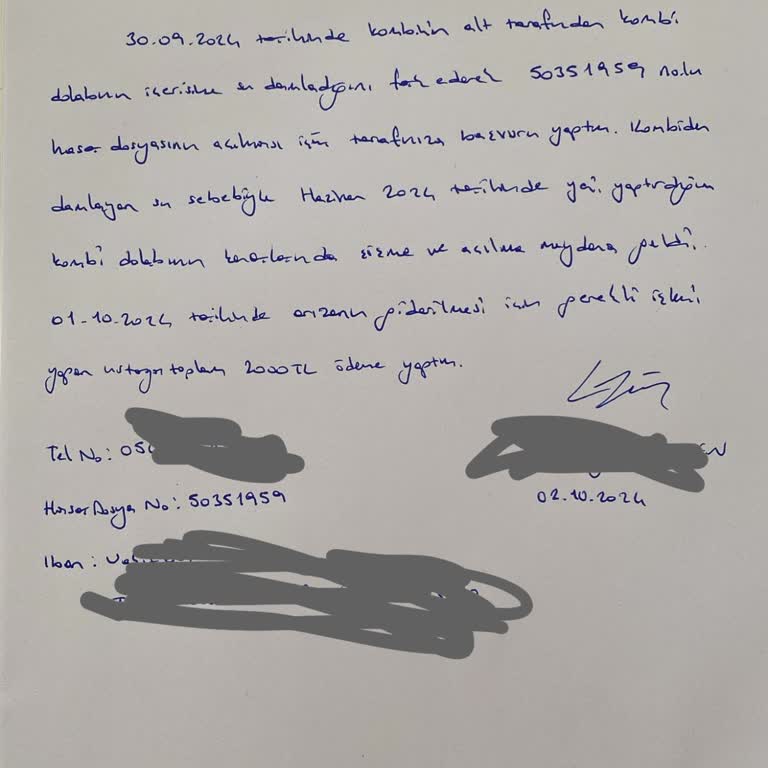 30.09.2024 tarihinde kombinin alt tarafından kombi
dolabının içerisine su damladığını fark ederek 50351959 nolu
hasar dosyasının açılması için tarafınıza başvuru yaptım. Kombiden
damlayan su sebebiyle Haziran 2024 tarihinde yeni yaptırdığım
kombi dolabının kenarlarında şişme ve açılma meydana geldi.
01.10.2024 tarihinde arızanın giderilmesi için gerekli işlemi
yapan ustaya toplam 2000TL ödeme yaptım.
Tel No: 05
02.10.2024
Hasar Dosya No: 50351959
Iban: